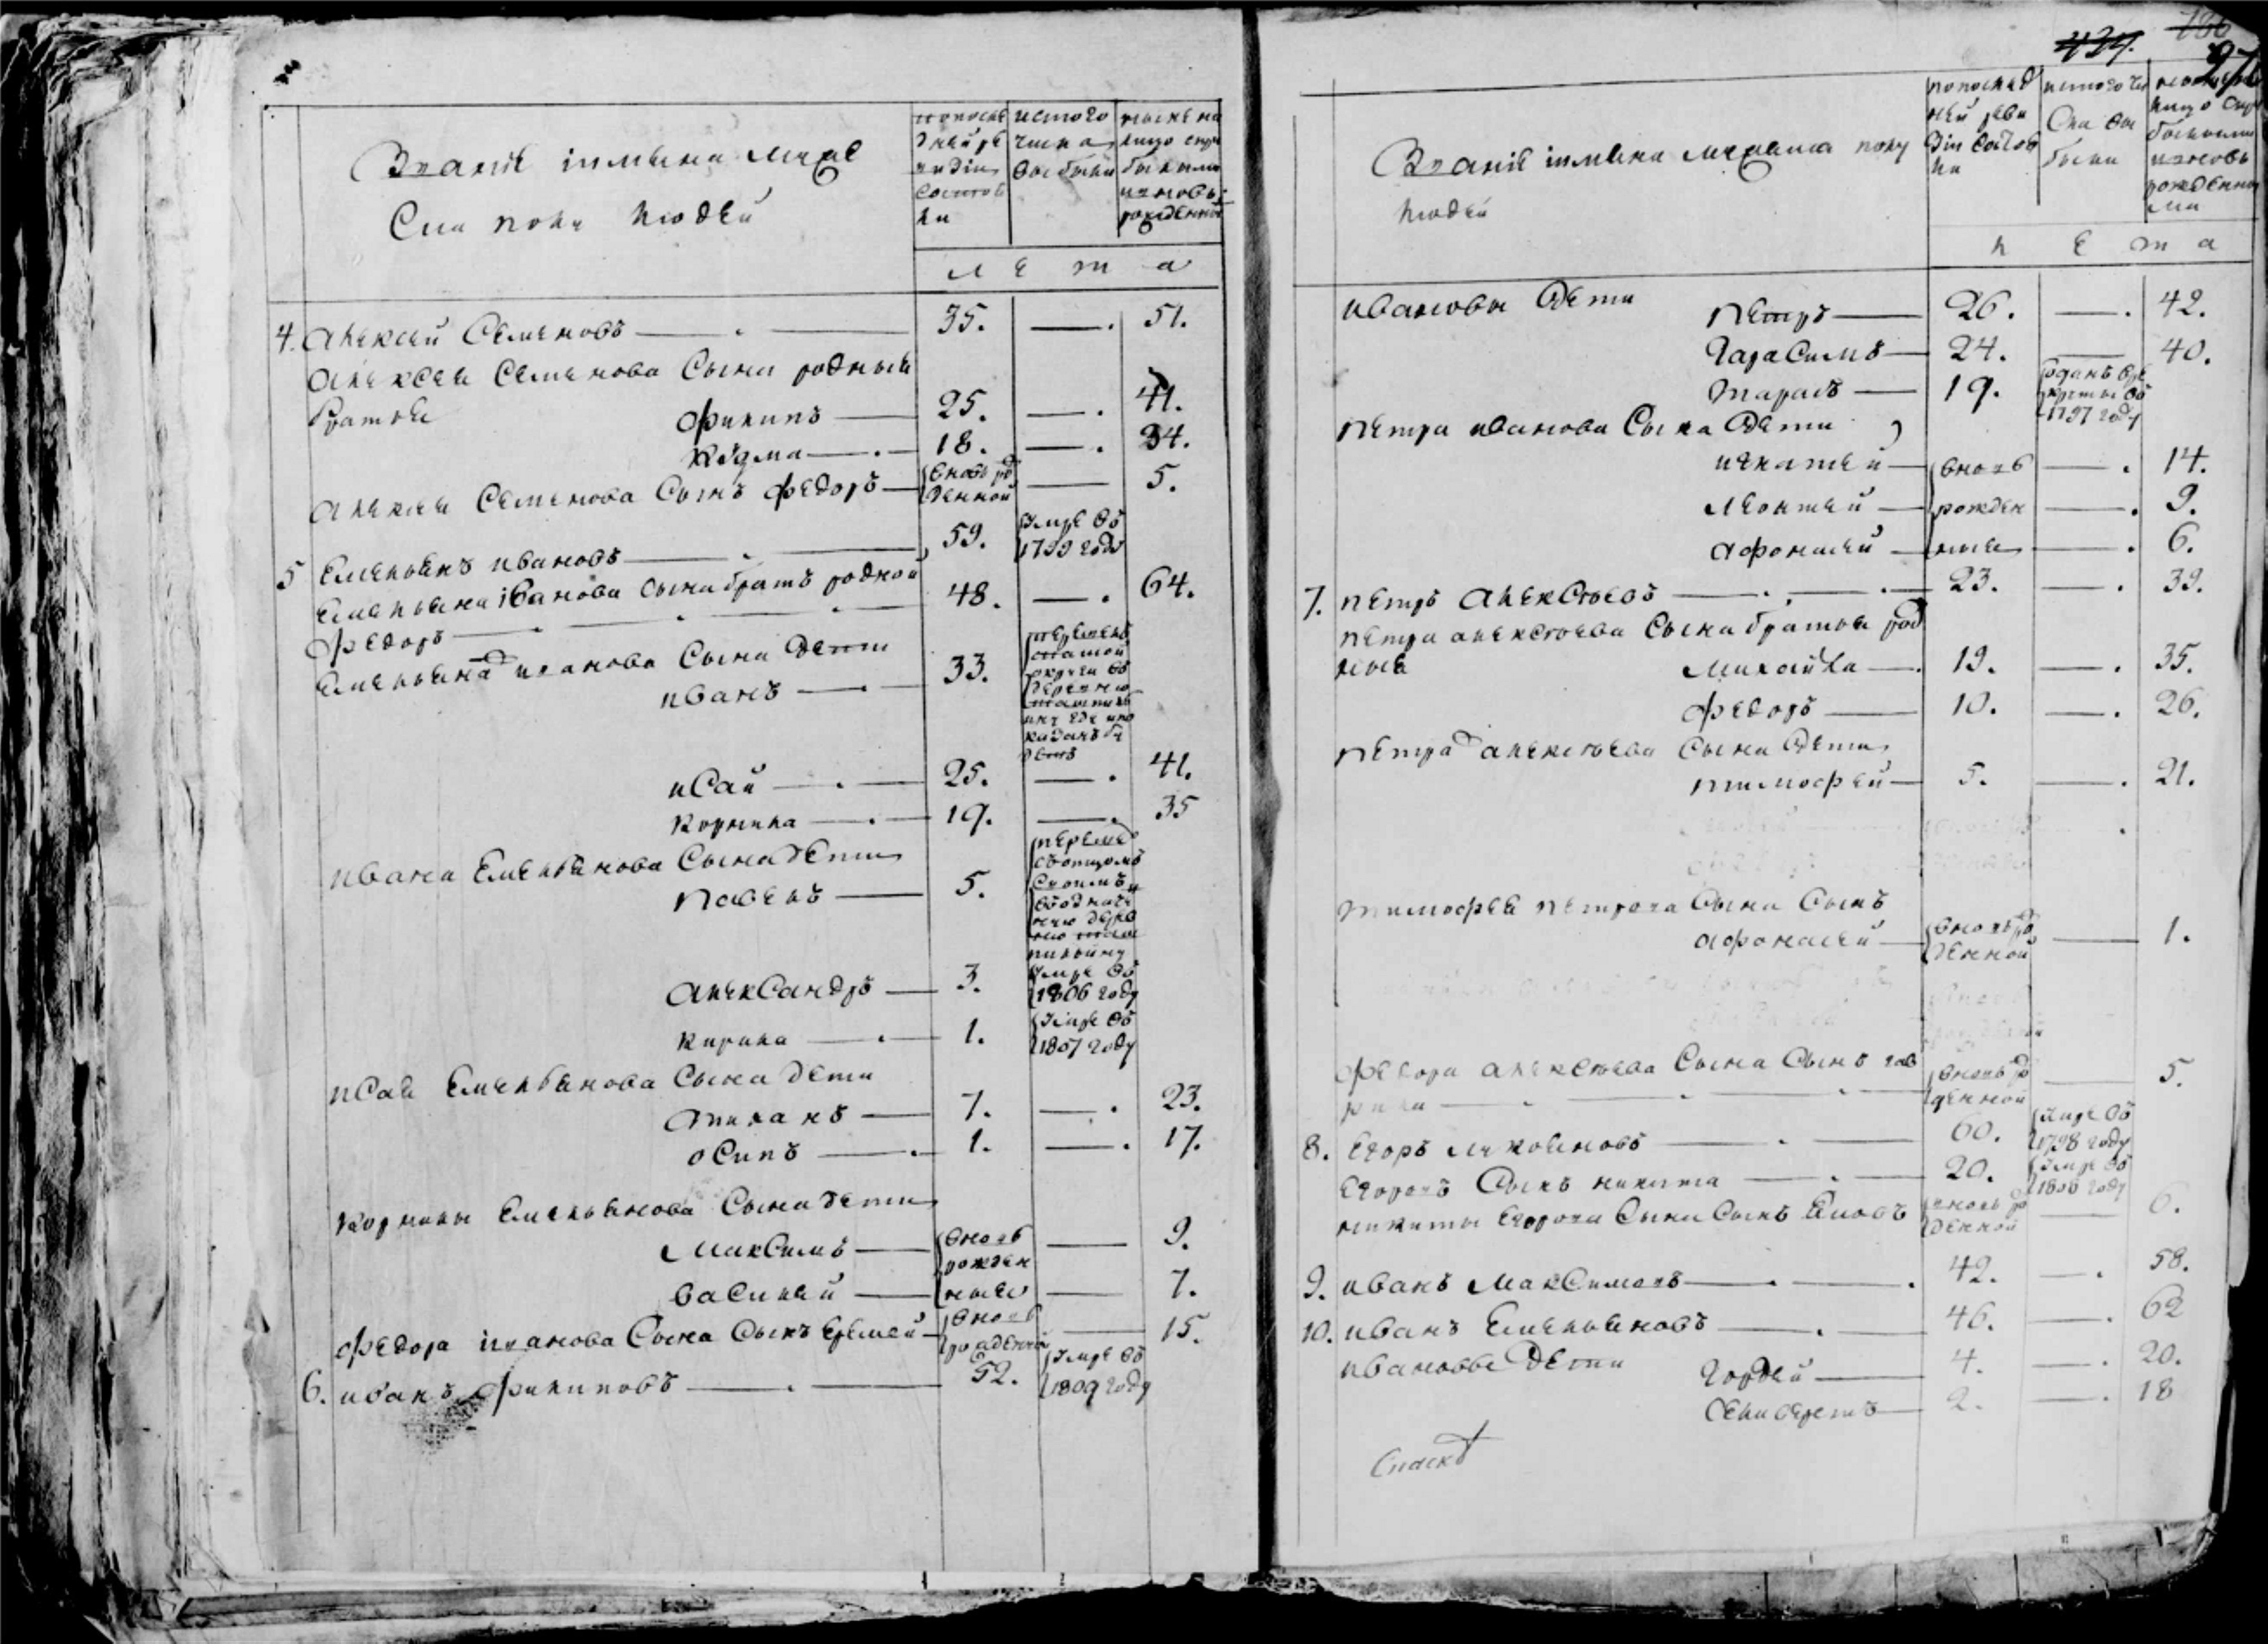 Званiе iимяна мужс
ска полу людей
по послѣ
дней ре
визiи
состоя
ли
ис того
числа
выбыли
ныне на
лицо спри
былыми
иновь
рожденны
л е т а
4. Алексей Семеновъ — 35. — 51.
Алексея Семенова сына родныя
братья Филипъ — 25. — 41.
Кузма — 18. — 34.
Алексея Семенова сынъ Федоръ — вновь ро
жденной — 5.
5 Емельянъ Ивановъ — 59. умре въ
1799 году
Емельяна iванова сына братъ родной
Федоръ — 48. — 64.
Емельяна Иванова сына дети
Иванъ — 33.
Исай — 25. — 41.
Корнила — 19. — 35
Ивана Емельянова сына дети
Павелъ — 5.
Александръ — 3. умре въ
1806 году
Кирила — 1. умре въ
1807 году
Исая Емельянова сына дети
7. — 23.
Осипъ — 1. — 17.
Корнилы Емельянова сына дети
Максимъ — вновь — 9.
рожден
Василей — ныя — 7.
Федора iванова сына сынъ Еремей — вновь
рожденной — 15.
6. Иванъ Филиповъ — 52. умре въ
1809 году
434.
186
97
Званiе iимяна мужеска полу
людей
по послед
ней реви
зiи состоя
ли
ис того чи
сла вы
были
л е т а
Ивановы дети Петръ — 26. — 42.
Гарасимъ — 24. — 40.
Тарасъ — 19. отданъ в ре
круты въ
1797 году
Петра Иванова сына дети
Игнатей — вновь — 14.
Леонтей — рожден — 9.
Афонасей — ныя — 6.
7. Петръ Алексѣевъ — 23. — 39.
Петра Алексѣева сына братья род
ныя Михайла — 19. — 35.
Федоръ — 10. — 26.
Петра Алексѣева сына дети
Тимофей — 5. — 21.
Тимофея Петрова сына сынъ
Афонасей — вновь ро
жденной — 1.
Федора Алексѣева сына сынъ Гав
рила — вновь ро
жденной — 5.
8. Егоръ — 60. умре въ
1798 году
Егоровъ сынъ Никита — 20. умре въ
1806 году
Никиты Егорова сына сынъ — вновь ро
жденной — 6.
9. Иванъ Максимовъ — 42. — 58.
10. Иванъ Емельяновъ — 46. — 62
Ивановы дети Гордей — 4. — 20.
Селиверстъ — 2. — 18